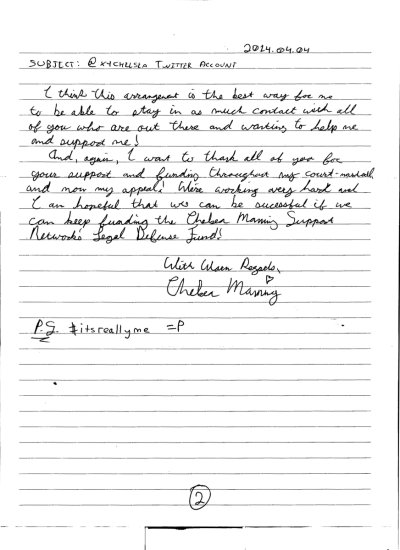 2014.04.04
SUBJECT: @XYCHELSEA TWITTER ACCOUNT
I think this arrangement is the best way for me
to be able to stay in as much contact with all
of you who are out there and wanting to help me
and support me!
And, again, I want to thank all of you for
your support and funding throughout my court-martial
and now my appeal! We're working very hard and
I am hopeful that we can be successful if we
can keep funding the Chelsea Manning Support
Network's Legal Defense Fund!
With Warm Regards,
Chelsea Manning
P.S. #itsreallyme =P
2